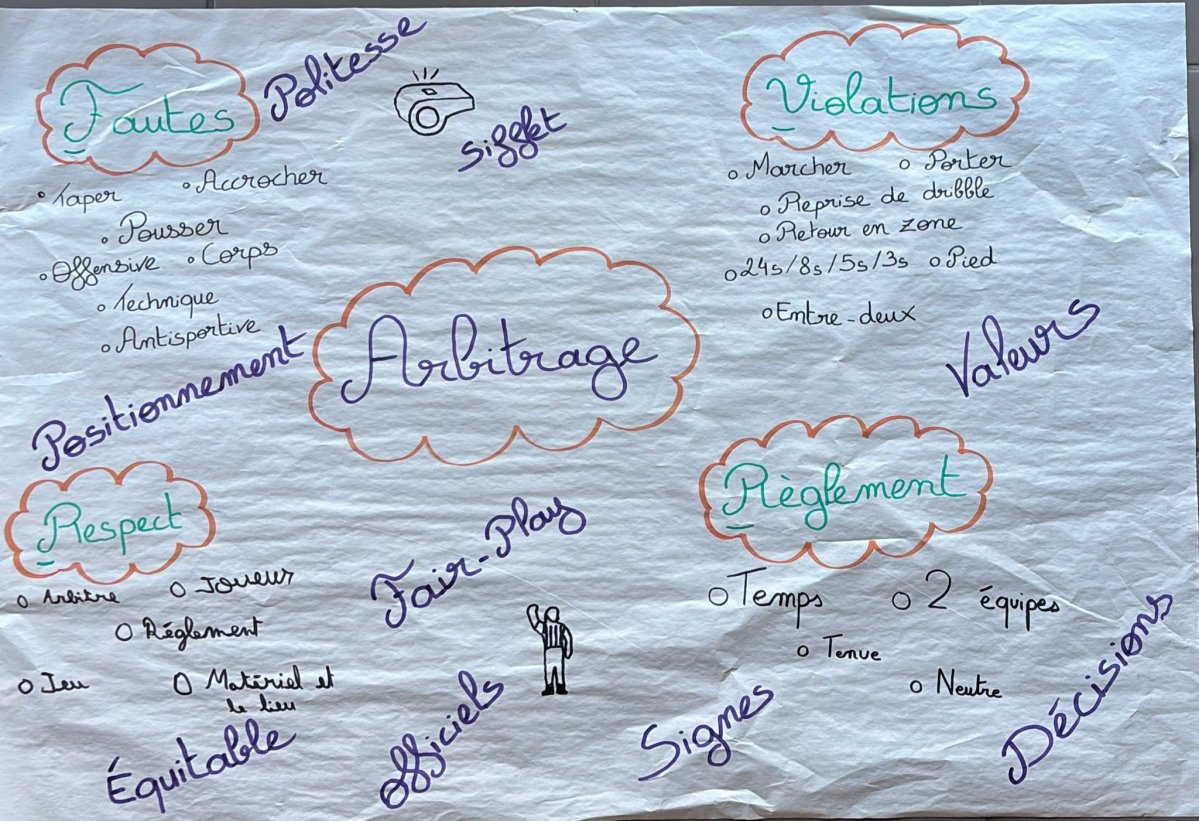 Fautes
Politesse
Sifflet
Violations
o Taper
o Accrocher
o Pousser
o Offensive o Corps
o Technique
o Antisportive
o Marcher o Porter
o Reprise de dribble
o Retour en zone
o 24s/8s/5s/3s o Pied
o Entre-deux
Arbitrage
Positionnement
Valeurs
Respect
o Arbitre o Joueur
o Réglement
o Jeu o Matériel et
le lieu
Fair-Play
Règlement
o Temps o 2 équipes
o Tenue
o Neutre
Équitable
Officiels
Signes
Décisions